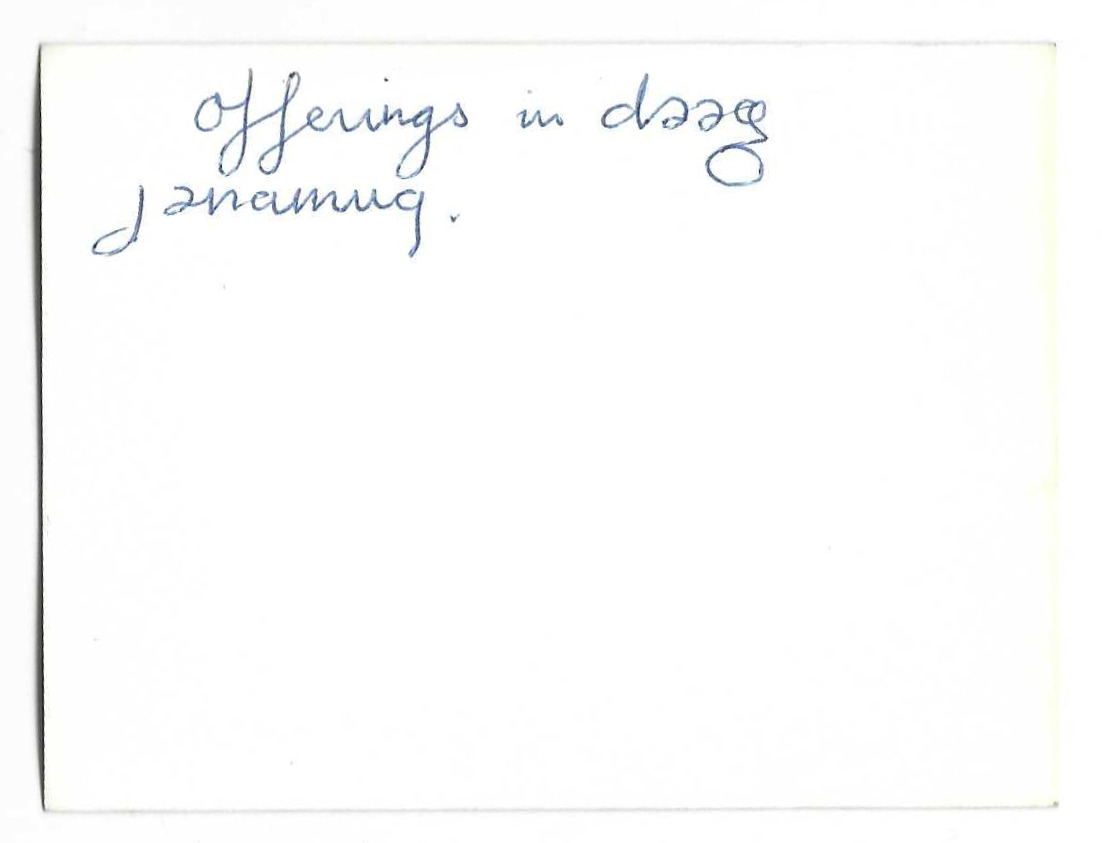 Offerings in dəəg
jənamuq.